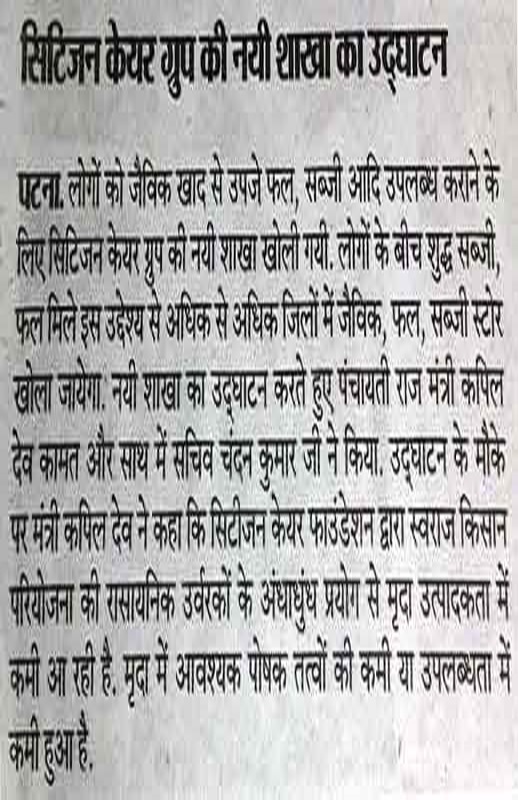 सिटिजन केयर ग्रुप की नयी शाखा का उद्घाटन
पटना. लोगों को जैविक खाद से उपजे फल, सब्जी आदि उपलब्ध कराने के
लिए सिटिजन केयर ग्रुप की नयी शाखा खोली गयी. लोगों के बीच शुद्ध सब्जी,
फल मिले इस उद्देश्य से अधिक से अधिक जिलों में जैविक, फल, सब्जी स्टोर
खोला जायेगा. नयी शाखा का उद्घाटन करते हुए पंचायती राज मंत्री कपिल
देव कामत और साथ में सचिव चंदन कुमार जी ने किया. उद्घाटन के मौके
पर मंत्री कपिल देव ने कहा कि सिटीजन केयर फाउंडेशन द्वारा स्वराज किसान
परियोजना की रासायनिक उर्वरकों के अंधाधुंध प्रयोग से मृदा उत्पादकता में
कमी आ रही है. मृदा में आवश्यक पोषक तत्वों की कमी या उपलब्धता में
कमी हुआ है.